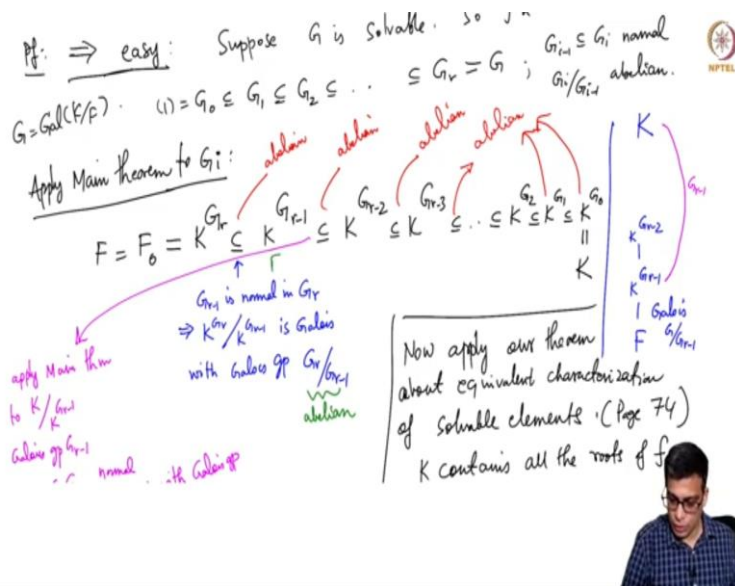 Pf: ⇒ easy: Suppose G is solvable. So
G=Gal(K/F). (1) = G₀ ≤ G₁ ≤ G₂ ≤ .. ≤ Gr = G ; Gi-1 ≤ Gi normal
Gi/Gi-1 abelian.
NPTEL
Apply Main theorem to Gi:
abelian abelian abelian abelian
F = F₀ = K^Gr ⊆ K^Gr-1 ⊆ K^Gr-2 ⊆ K^Gr-3 ⊆ .. ⊆ K^G₂ ⊆ K^G₁ ⊆ K^G₀
||
K
Gr-1 is normal in Gr
⇒ K^Gr/K^Gr-1 is Galois
with Galois gp Gr/Gr-1
abelian
apply Main thm
to K/K^Gr-1
Galois gp Gr-1
normal with Galois gp
Now apply our theorem
about equivalent characterization
of solvable elements. (Page 74)
K contains all the roots of f
K
Gr-1
K^Gr-2
|
K^Gr-1
| Galois
F G/Gr-1